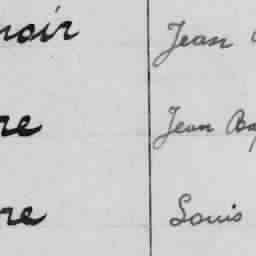 noir Jean
re Jean Bap
re Louis